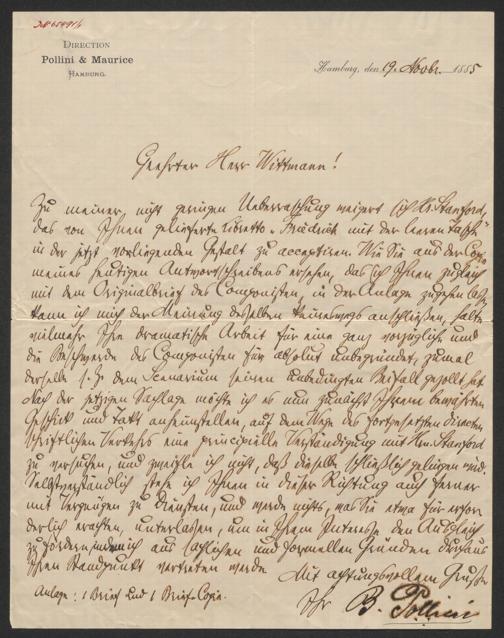 Direction
Pollini & Maurice
Hamburg.
Hamburg, den 19. Novbr. 1885
Geehrter Herr Wittmann!
Zu meiner nicht geringen Ueberraschung weigert sich Hr. Stanford,
das von Ihnen gelieferte Libretto „Friedrich mit der leeren Tasche"
in der jetzt vorliegenden Gestalt zu acceptiren. Wie Sie aus der Copie
meines heutigen Antwortschreibens ersehen, das ich Ihnen zugleich
mit dem Originalbrief des Componisten, in der Anlage zugehen lasse,
kann ich mich der Meinung desselben keineswegs anschließen, halte
vielmehr Ihre dramatische Arbeit für eine ganz vorzügliche und
die Beschwerde des Componisten für absolut unbegründet, zumal
derselbe s. Z. dem Scenarium seinen unbedingten Beifall gezollt hat.
Nach der jetzigen Sachlage möchte ich es nun zunächst Ihrem bewährten
Geschick und Takt anheimstellen, auf dem Wege des fortgesetzten directen
schriftlichen Verkehrs eine principielle Verständigung mit Hrn. Stanford
zu versuchen, und zweifle ich nicht, daß dieselbe schließlich gelingen wird.
Selbstverständlich stehe ich Ihnen in dieser Richtung auch ferner
mit Vergnügen zu Diensten, und werde nichts, was Sie etwa für erfor
derlich erachten, unterlassen, um in Ihrem Interesse den Ausgleich
zu fördern, indem ich aus sachlichen und formellen Gründen durchaus
Ihren Standpunkt vertreten werde
Mit achtungsvollem Gruße
Anlage: 1 Brief und 1 Brief-Copie.
Ihr B. Pollini